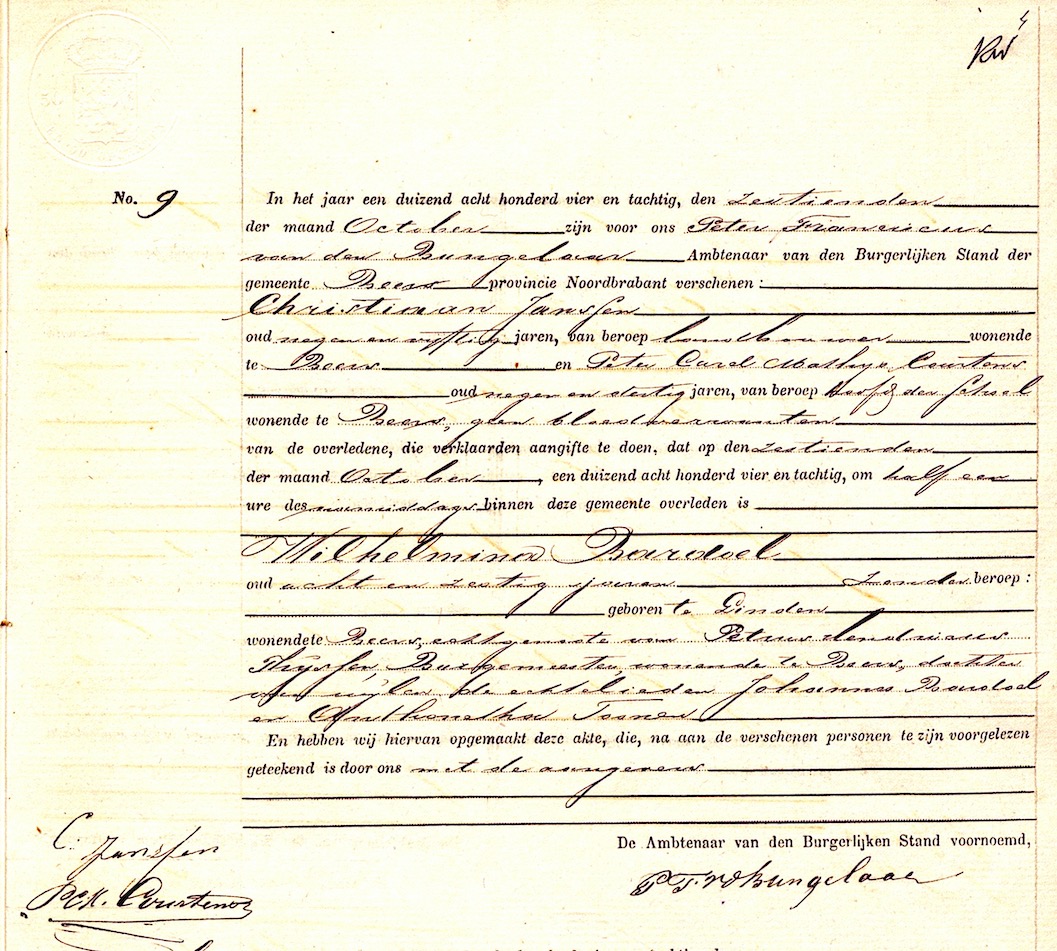 No. 9
In het jaar een duizend acht honderd vier en tachtig, den zestienden
der maand October zijn voor ons Peter Franciscus
van den Bungelaar Ambtenaar van den Burgerlijken Stand der
gemeente Beers provincie Noordbrabant verschenen:
Christiaan Janssen
oud negen en vijftig jaren, van beroep landbouwer wonende
te Beers en Peter Carel Mathijs Courtens
oud negen en dertig jaren, van beroep hoofd der School
wonende te Beers, geen bloedverwanten
van de overledene, die verklaarden aangifte te doen, dat op den zestienden
der maand October, een duizend acht honderd vier en tachtig, om half een
ure des namiddags binnen deze gemeente overleden is
Wilhelmina Bardoel
oud acht en zestig jaren zonder beroep:
geboren te Linden
wonende te Beers, echtgenoote van Petrus Hendricus
Thijssen, Burgemeester, wonende te Beers, dochter
van wijlen de echtelieden Johannes Bardoel
en Anthonetha Toonen
En hebben wij hiervan opgemaakt deze akte, die, na aan de verschenen personen te zijn voorgelezen
geteekend is door ons met de aangevers
De Ambtenaar van den Burgerlijken Stand voornoemd,
C. Janssen
PCM. Courtens
P F vd Bungelaar